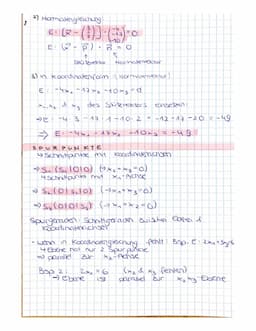 2) Normalengleichung:
E: [x⃗ - (3 1 2)] · (-4 -17 -10) = 0
E: (x⃗ - p⃗) · n⃗ = 0
Stützvektor Normalenvektor
3) in Koordinatenform (Normalenvektor)
E: -4x₁ -17x₂ -10x₃ = d
x₁, x₂ & x₃ des Stützvektors einsetzen:
⇒ E: -4·3 -17·1 -10·2 = -12 -17 -20 = -49
⇒ E: -4x₁ -17x₂ -10x₃ = -49
SPURPUNKTE
↳ Schnittpunkte mit Koordinatenachsen
⇒ S₁ (S₁|0|0) (→ x₂ = x₃ = 0)
↳ Schnittpunkt mit x₁-Achse
⇒ S₂ (0|S₂|0) (→ x₁ = x₃ = 0)
⇒ S₃ (0|0|S₃) (→ x₁ = x₂ = 0)
Spurgeraden: Schnittgeraden zwischen Ebene &
Koordinatenachsen
- wenn in Koordinatengleichung fehlt Bsp. E: 2x₁ + 3x₂ = 6
↳ Ebene hat nur 2 Spurpunkte
⇒ parallel zur x₃-Achse
Bsp 2: 2x₂ = 6 (x₁ & x₃ fehlen)
→ Ebene ist parallel zur x₁x₃-Ebene